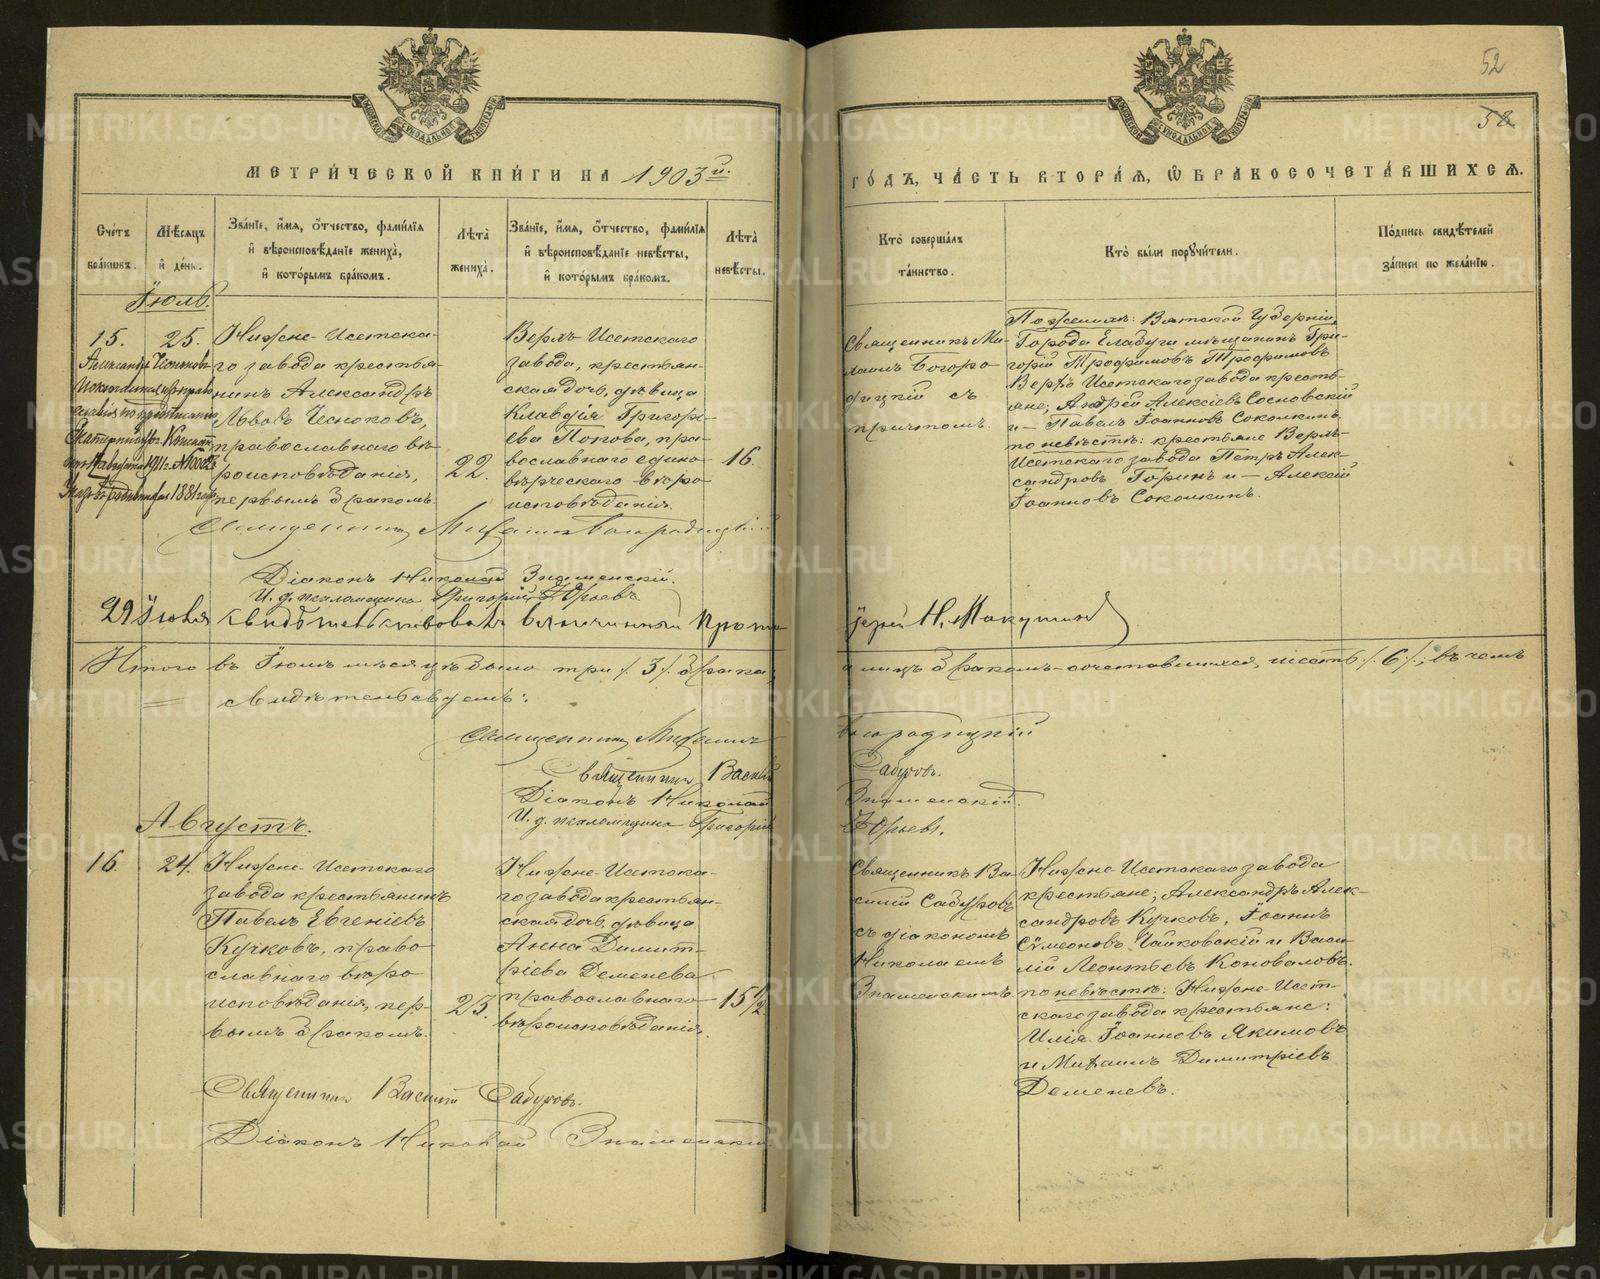 52
58
МЕТРИ́ЧЕСКОЙ КНИ́ГИ НА 1903й. ГО́ДЪ, ЧА́СТЬ ВТОРА́Я, Ѡ БРАКОСОЧЕТА́ВШИХСЯ.
Сче́тъ бра́ковъ.
Мѣ́сяцъ и де́нь.
Зва́нїе, и́мя, о́тчество, фами́лїя и вѣроисповѣ́данїе жениха̀, и кото́рымъ бра́комъ.
Лѣ́та жениха̀.
Зва́нїе, и́мя, о́тчество, фами́лїя и вѣроисповѣ́данїе невѣ́сты, и кото́рымъ бра́комъ.
Лѣ́та невѣ́сты.
Кто̀ соверша́лъ та́инство.
Кто̀ бы́ли порꙋчи́тели.
По́дпись свидѣ́телей за́писи по жела́нїю.
Іюль.
15.
25.
Нижне-Исетска-
го завода крестья-
нинъ Александръ
Львовъ Чесноковъ,
православнаго вѣ-
роисповѣданія,
первымъ бракомъ.
22.
Верхъ-Исетскаго
завода, крестьян-
ская дочь, дѣвица
Клавдія Григорі-
ева Попова, пра-
вославнаго едино-
вѣрческаго вѣро
исповѣданія.
16.
Священникъ Ми-
хаилъ Богоро-
дицкій съ
причтомъ.
По женихѣ: Вятской Губерніи,
Города Елабуги мѣщанинъ Гри-
горій Трофимовъ Трофимовъ
Верхъ Исетскаго завода кресть-
яне; Андрей Алексіевъ Сосновскій
и – Павелъ Іоанновъ Соколкинъ
по невѣстѣ: крестьяне Верхъ-
Исетскаго завода Петръ Алек-
сандровъ Горинъ и – Алексій
Іоанновъ Соколкинъ.
Священникъ Михаилъ Богородицкій
Діаконъ Николай Знаменскій.
И. д. псаломщика Григорій Юрьевъ.
29 Іюля свидѣтельствовалъ
Іерей Н. Макушинъ
Итого въ Іюлѣ мѣсяцѣ было три /3/ брака,
а лицъ бракомъ-сочетавшихся, шесть /6/; въ чемъ
свидѣтельствуемъ:
Священникъ Михаилъ Богородицкій
Священникъ Василій Сабуровъ.
Діаконъ Николай Знаменскій.
И. д. псаломщика Григорій Юрьевъ.
Августъ.
16.
24.
Нижне-Исетскаго
завода крестьянинъ
Павелъ Евгеніевъ
Кучковъ, право
славнаго вѣро
исповѣданія, пер-
вымъ бракомъ.
23.
Нижне-Исетска-
го завода крестьян-
ская дочь, дѣвица
Анна Димит-
ріева Деменева
православнаго
вѣроисповѣданія.
15 1/2
Священникъ Ва-
силій Сабуровъ
съ діакономъ
Николаемъ
Знаменскимъ
Нижне-Исетскаго завода
крестьяне; Александръ Алек-
сандровъ Кучковъ, Іоаннъ
Симеоновъ Чайковскій и Васи-
лій Леонтьевъ Коноваловъ.
по невѣстѣ: Нижне-Исет-
скаго завода крестьяне:
Илія Іоанновъ Якимовъ
и Михаилъ Димитріевъ
Деменевъ.
Священникъ Василій Сабуровъ.
Діаконъ Николай Знаменскій
METRIKI.GASO-URAL.RU